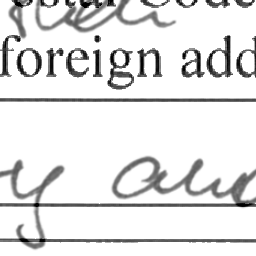 ostal Code
foreign add
y and